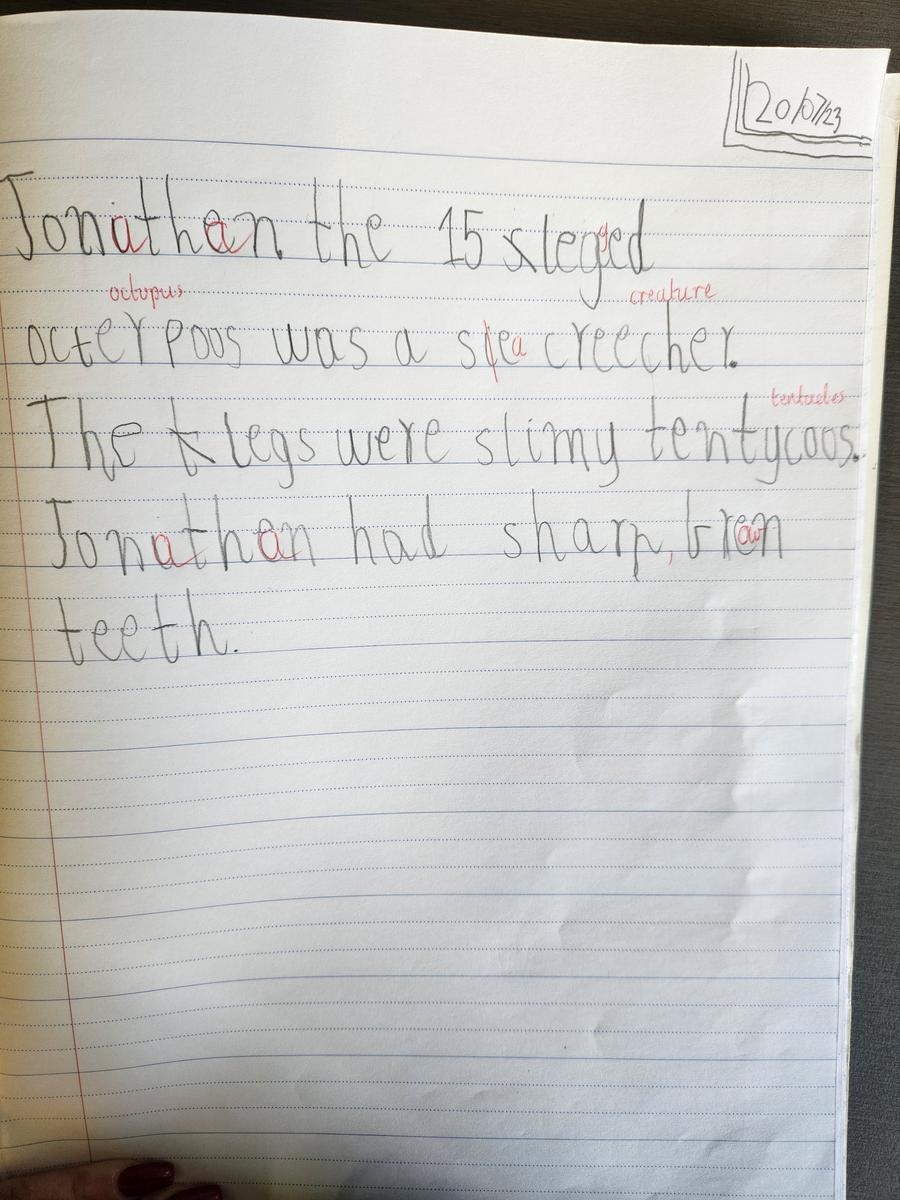 20/07/23
Jonathan the 15 legged
octopus creature
octerpoos was a sea creecher.
tentacles
The legs were slimy tentycoos.
Jonathan had sharp, brawn
teeth.